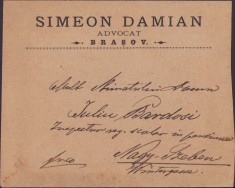 SIMEON DAMIAN
ADVOCAT
BRASOV.
Mult Onoratului Domn
Iuliu Bardosi
Inspector reg. scolar in pensiune
fco
Nagy-Szeben
Wintergasse